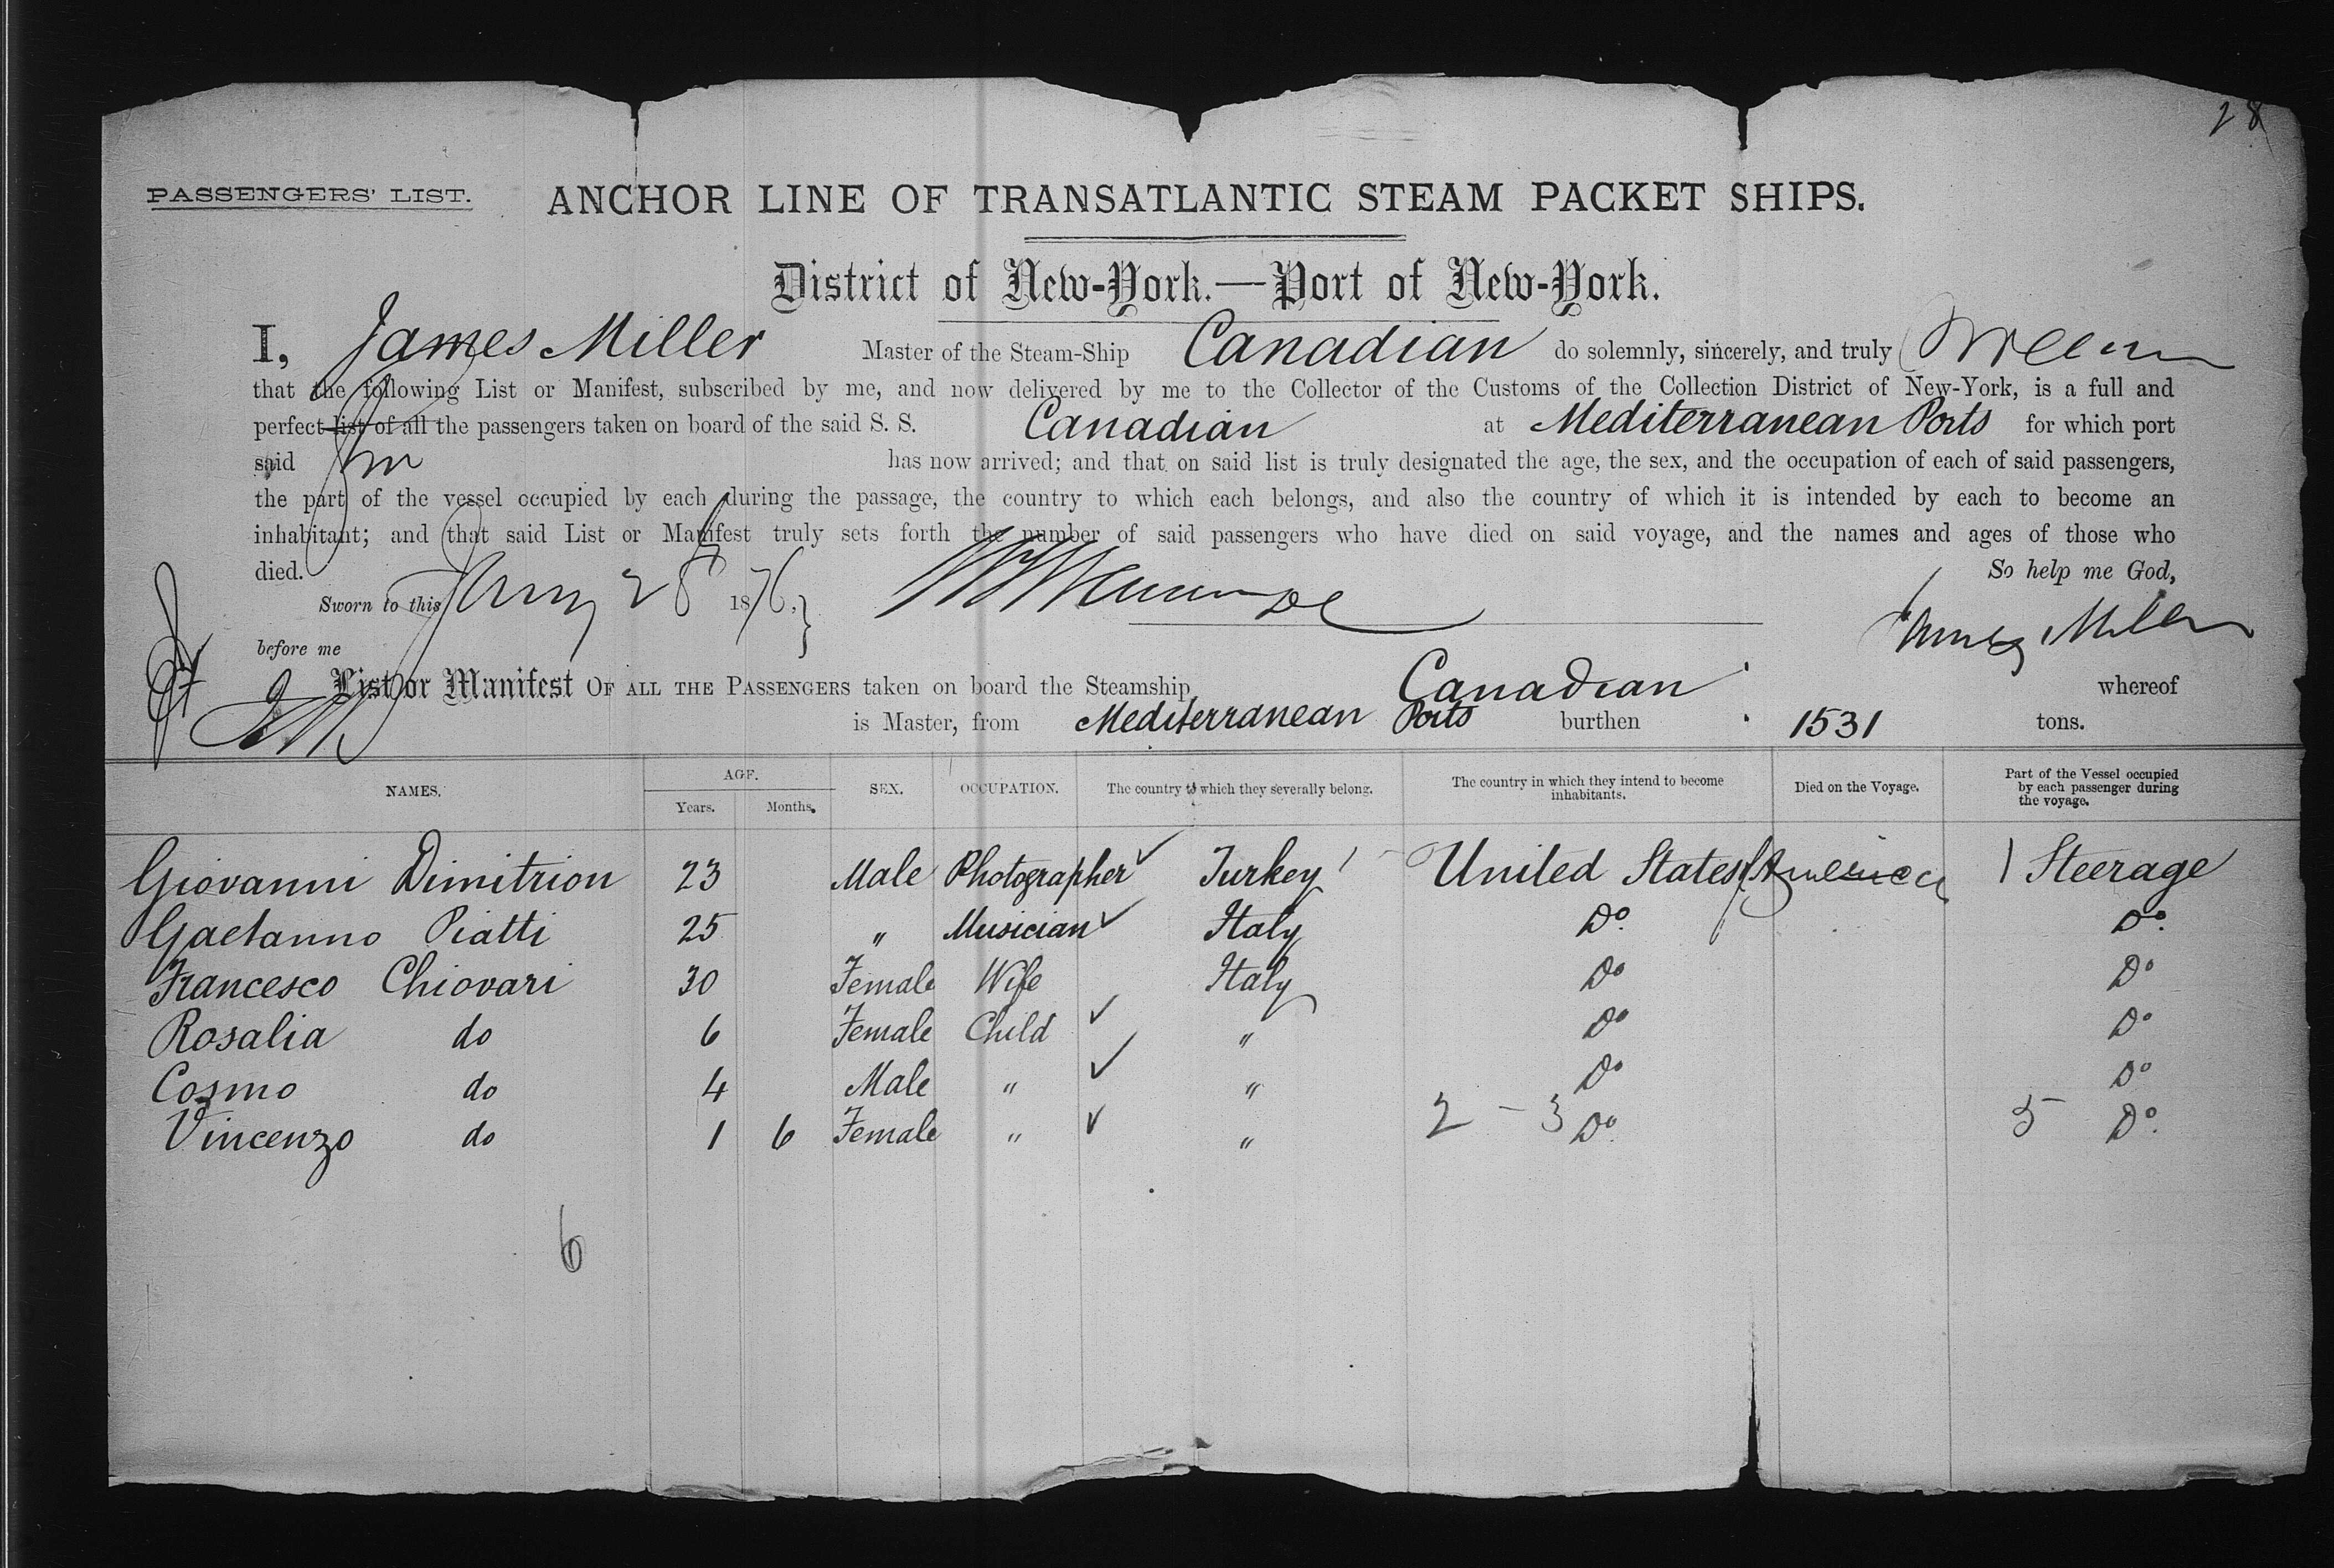 28
PASSENGERS' LIST. ANCHOR LINE OF TRANSATLANTIC STEAM PACKET SHIPS.
District of New-York.—Port of New-York.
I, James Miller Master of the Steam-Ship Canadian do solemnly, sincerely, and truly
that the following List or Manifest, subscribed by me, and now delivered by me to the Collector of the Customs of the Collection District of New-York, is a full and
perfect list of all the passengers taken on board of the said S. S. Canadian at Mediterranean Ports for which port
said has now arrived; and that on said list is truly designated the age, the sex, and the occupation of each of said passengers,
the part of the vessel occupied by each during the passage, the country to which each belongs, and also the country of which it is intended by each to become an
inhabitant; and that said List or Manifest truly sets forth the number of said passengers who have died on said voyage, and the names and ages of those who
died. So help me God,
Sworn to this 28 1876,
James Miller
before me
List or Manifest OF ALL THE PASSENGERS taken on board the Steamship Canadian whereof
is Master, from Mediterranean Ports burthen 1531 tons.
NAMES. AGE. Years. Months. SEX. OCCUPATION. The country to which they severally belong. The country in which they intend to become inhabitants. Died on the Voyage. Part of the Vessel occupied by each passenger during the voyage.
Giovanni Dimitrion 23 Male Photographer Turkey United States of America 1 Steerage
Gaetanno Piatti 25 " Musician Italy Do. Do.
Francesco Chiovari 30 Female Wife Italy Do Do
Rosalia do 6 Female Child " Do Do
Cosmo do 4 Male " " Do Do
Vincenzo do 1 6 Female " " 2 - 3 Do. 5 Do.
6